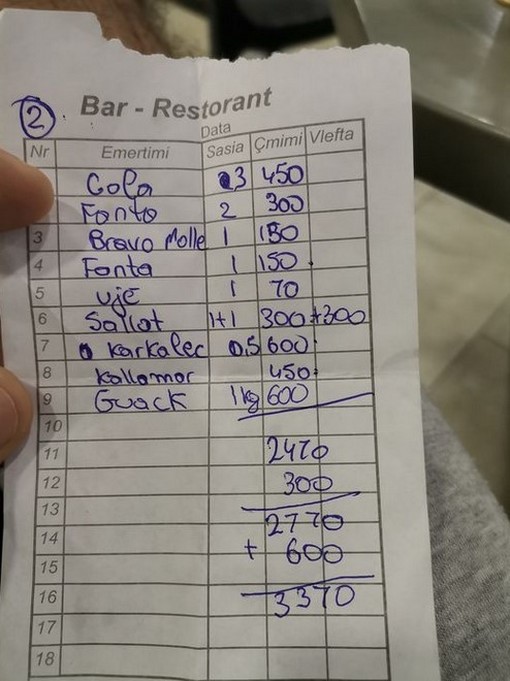 2
Bar - Restorant
Data
Nr Emertimi Sasia Çmimi Vlefta
Cola 3 450
Fanta 2 300
3 Bravo Molle 1 150
4 Fanta 1 150
5 ujë 1 70
6 Sallat 1+1 300+300
7 karkalec 0,5 600
8 kallamar 450
9 Guack 1kg 600
10
11 2470
12 300
13
14 2770
15 + 600
16 3370
17
18